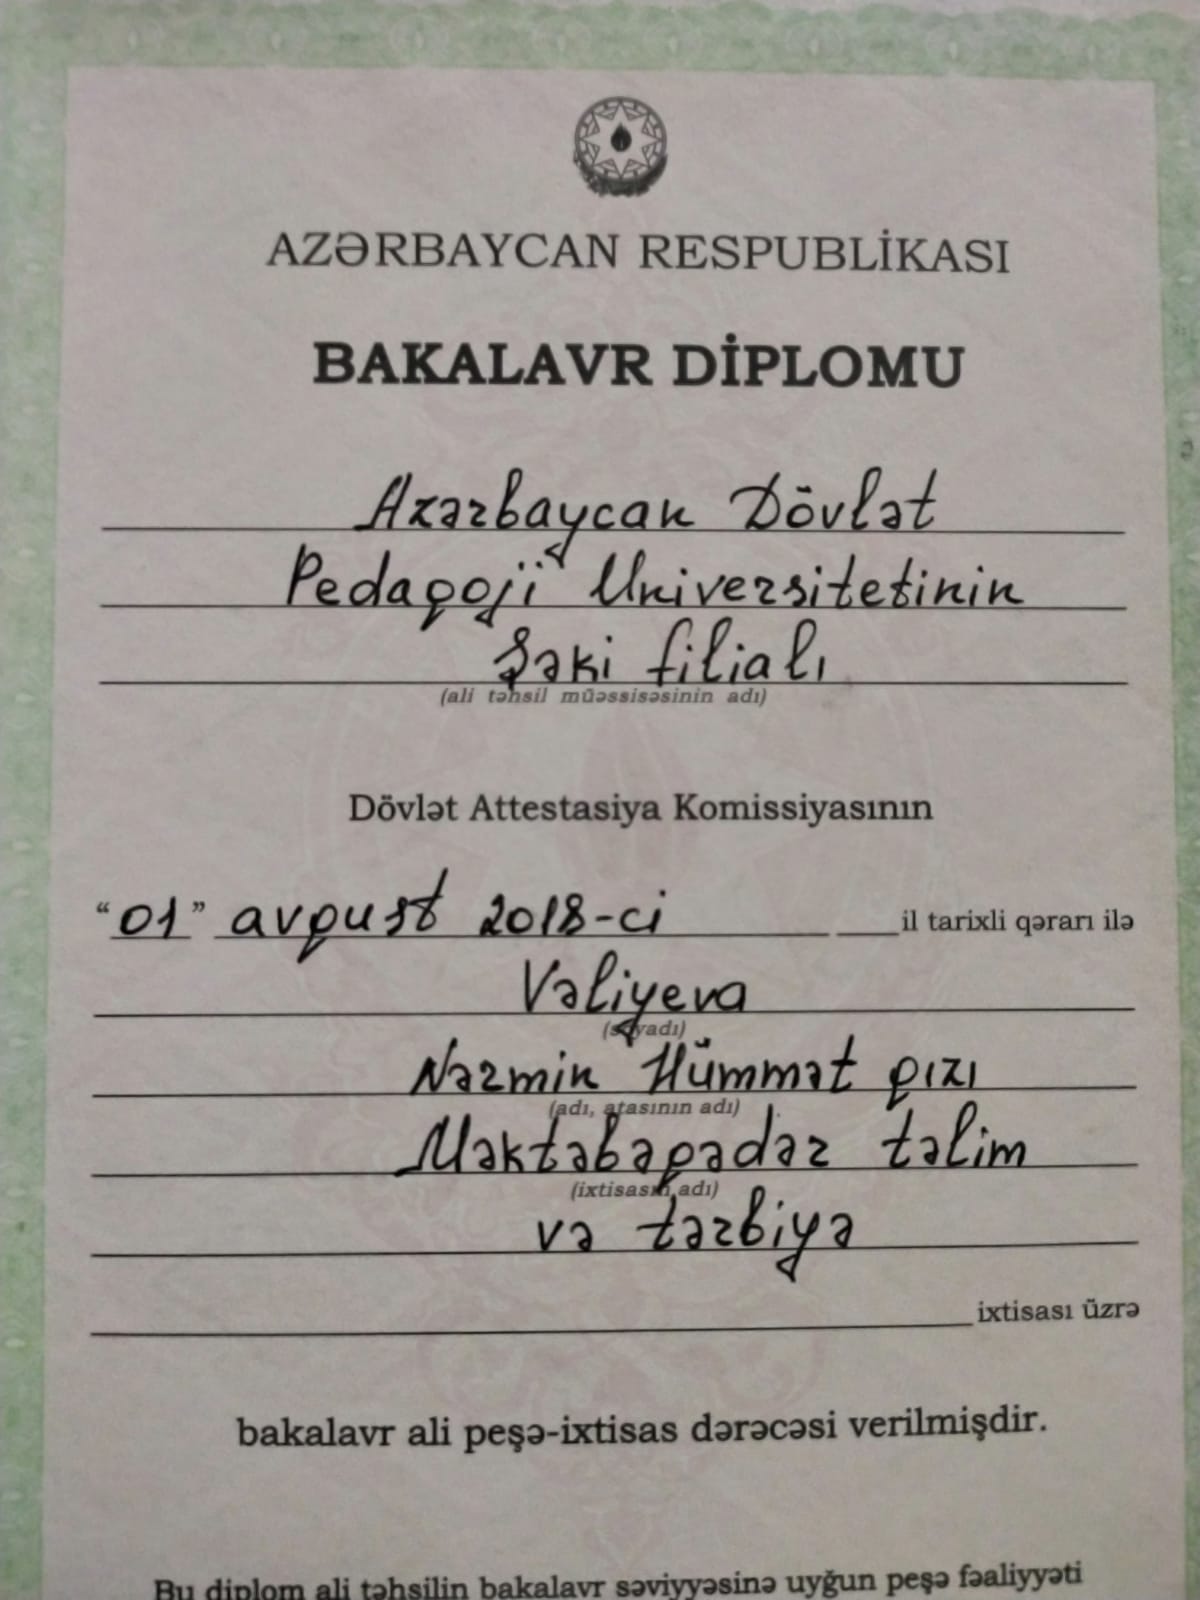 AZƏRBAYCAN RESPUBLİKASI
BAKALAVR DİPLOMU
Azərbaycan Dövlət
Pedaqoji Universitetinin
Şəki filialı
(ali təhsil müəssisəsinin adı)
Dövlət Attestasiya Komissiyasının
“01” avqust 2018-ci il tarixli qərarı ilə
Vəliyeva
(soyadı)
Nərmin Hümmət qızı
(adı, atasının adı)
Məktəbəqədər təlim
(ixtisasın adı)
və tərbiyə
ixtisası üzrə
bakalavr ali peşə-ixtisas dərəcəsi verilmişdir.
Bu diplom ali təhsilin bakalavr səviyyəsinə uyğun peşə fəaliyyəti